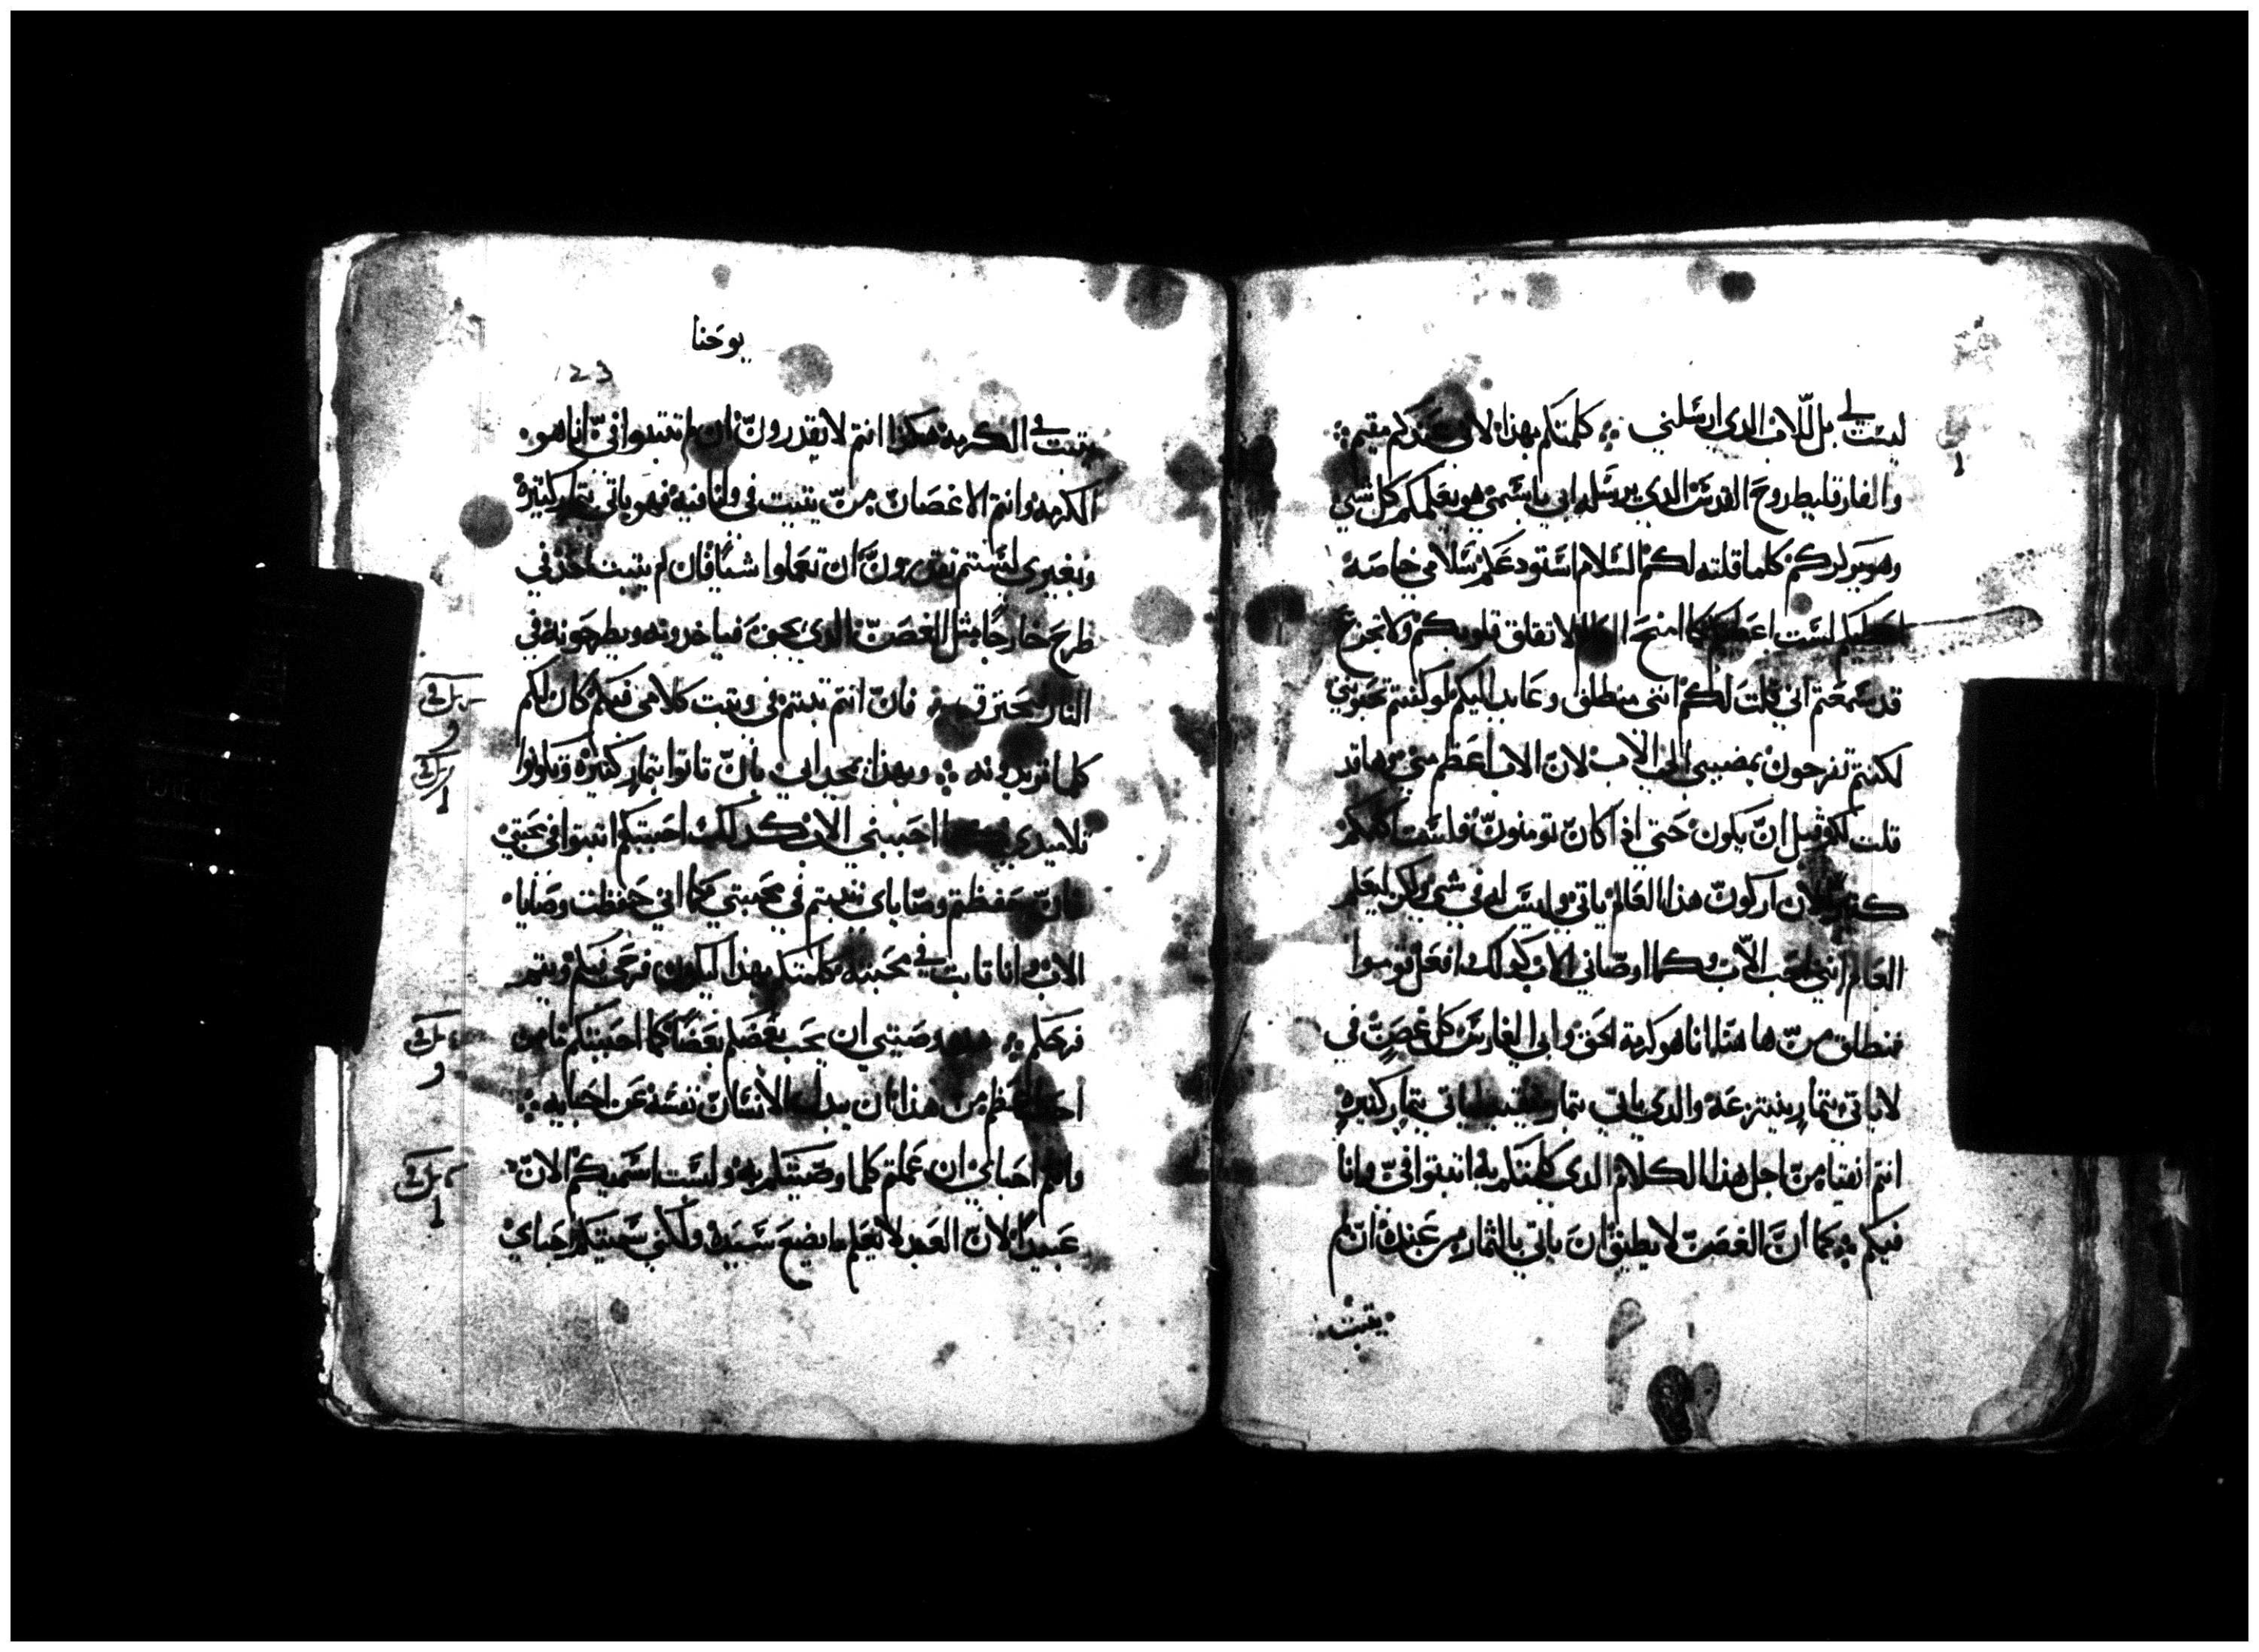 ليست لي بل للاب الدي ارسلني ۞ كلمتكم بهدا لاني عندكم مقيم ۞
والفارقليط روح القدس الدي يرسله ابي باسمي هو يعلمكم كل شي
وهو يدكركم كلما قلته لكم السلام استودعكم سلامي خاصه
اعطيكم لست اعطيكم كما امنح العالم لا تقلق قلوبكم ولا تجزع
قد سمعتم اني قلت لكم انني منطلق وعايد اليكم لو كنتم تحبوني
لكنتم تفرحون بمضيي الي الاب لان الاب اعظم مني وها قد
قلت لكم قبل ان يكون حتي ادا كان تومنون فلست اكلمكم
كتيرا لان اركون هدا العالم ياتي وليس له في شي ولكن ليعلم
العالم انني احب الاب وكما اوصاني الاب كدلك افعل قوموا
ننطلق من هاهنا انا هو كرمة الحق وابي الفارس كل غصن في
لا ياتي بتمار ينتزعه والدي ياتي بتمار ينقيه لياتي بتمار كتيره
انتم انقيا من اجل هدا الكلام الدي كلمتكم به اتبتوا في وانا
فيكم ۞ كما ان الغصن لا يطيق ان ياتي بالتمار من عنده ان لم
يتبت
يوحنا
123
يتبت في الكرمه هكدا انتم لا تقدرون ان لم تتبتوا في انا هو
الكرمه وانتم الاغصان من يتبت في وانا فيه فهو ياتي بتمار كتيره
وبغيري لستم تقدرون ان تعملوا شيا فان لم يتبت احد في
طرح خارجا متل الغصن الدي يجف فياخدونه ويطرحونه في
النار فيحترق ۞ فان انتم تبتم في وتبت كلامي فيكم كان لكم
كلما تريدونه ۞ وبهدا يمجد ابي بان تاتوا بتمار كتيره وتكونوا
تلاميدي احببني الاب كدلك احببتكم اتبتوا في محبتي
فان حفظتم وصاياي تبتم في محبتي كما اني حفظت وصايا
الاب وانا تابت في محبته كلمتكم بهدا ليكون فرحي فيكم ويتم
فرحكم ۞ هده وصيتي ان يحب بعضكم بعضا كما احببتكم ما من
احد اعظم من هدا ان يبدل الانسان نفسه عن احبايه ۞
وانتم احباي ان عملتم كلما وصيتكم به ولست اسميكم الان
عبيدا لان العبد لا يعلم ما يصنع سيده ولكني سميتكم احباي